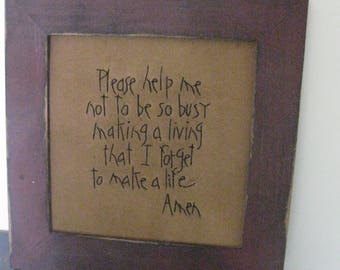 Please help me
not to be so busy
making a living
that I forget
to make a life
Amen